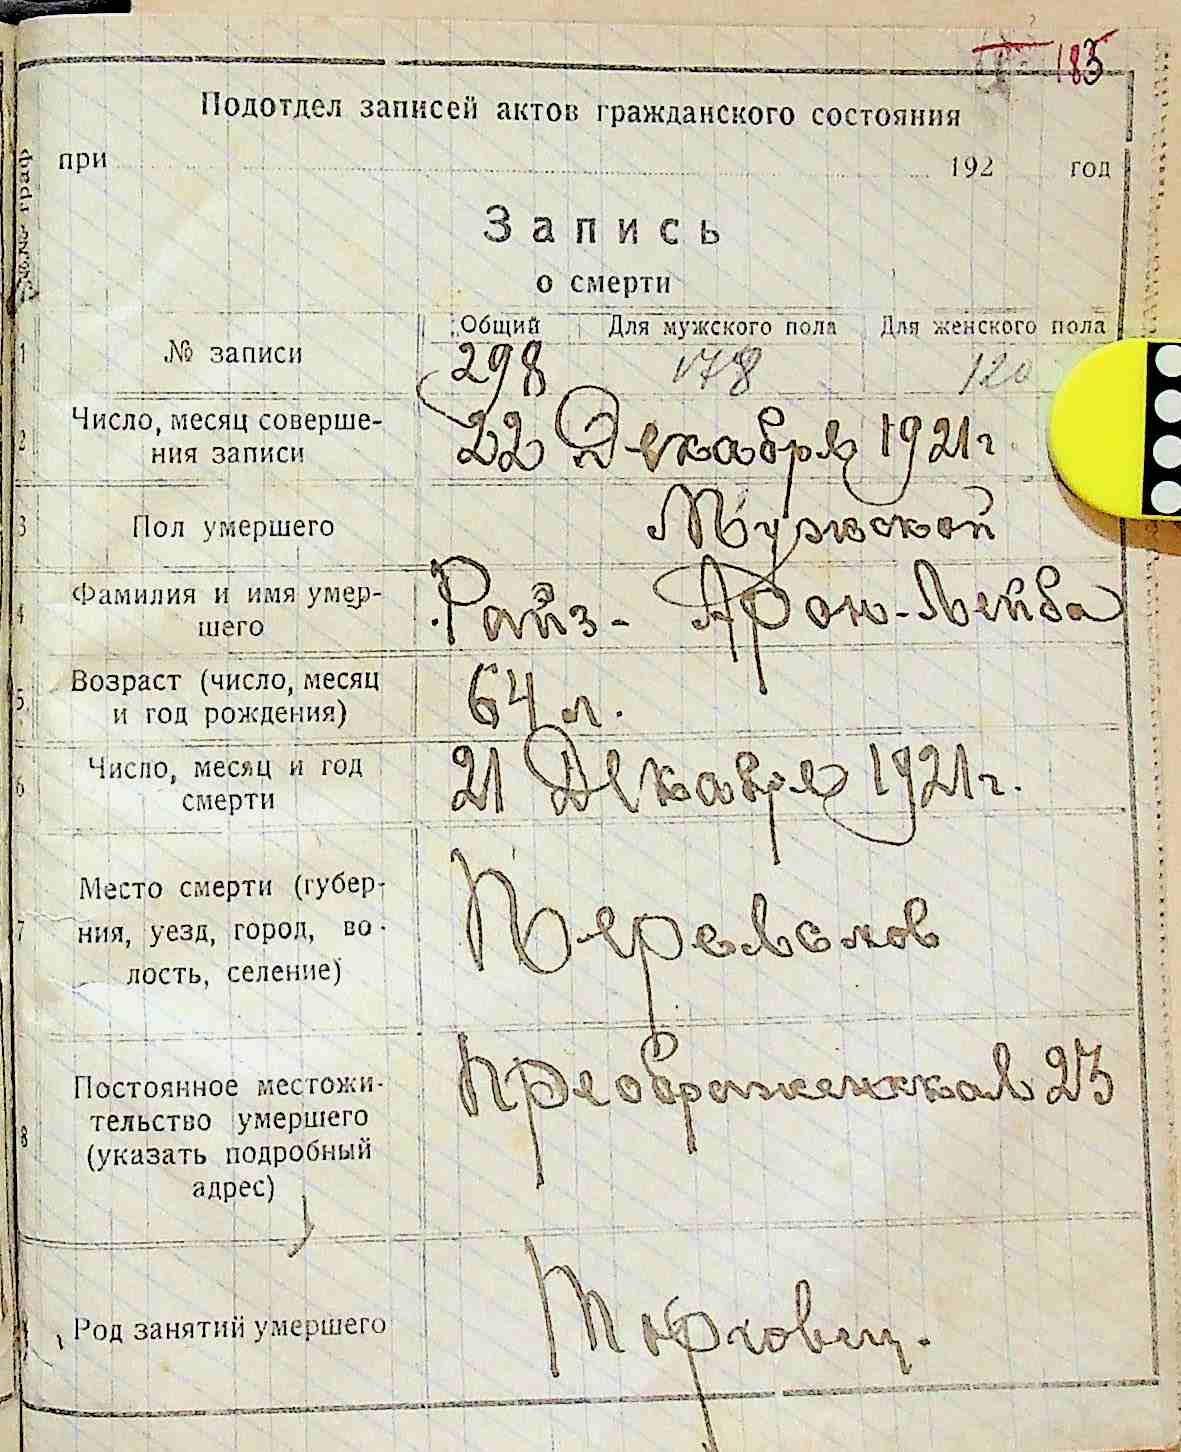 185
Подотдел записей актов гражданского состояния
при 192 год
Запись
о смерти
Общий Для мужского пола Для женского пола
1 № записи 298 178 120
2 Число, месяц соверше-
ния записи 22 Декабря 1921 г
3 Пол умершего Мужской
4 Фамилия и имя умер-
шего Райз- Арон-Лейба
5 Возраст (число, месяц
и год рождения) 64 л.
6 Число, месяц и год
смерти 21 Декабря 1921 г.
7 Место смерти (губер-
ния, уезд, город, во-
лость, селение)
8 Постоянное местожи-
тельство умершего
(указать подробный
адрес) Преображенская 23
Род занятий умершего Торговец.